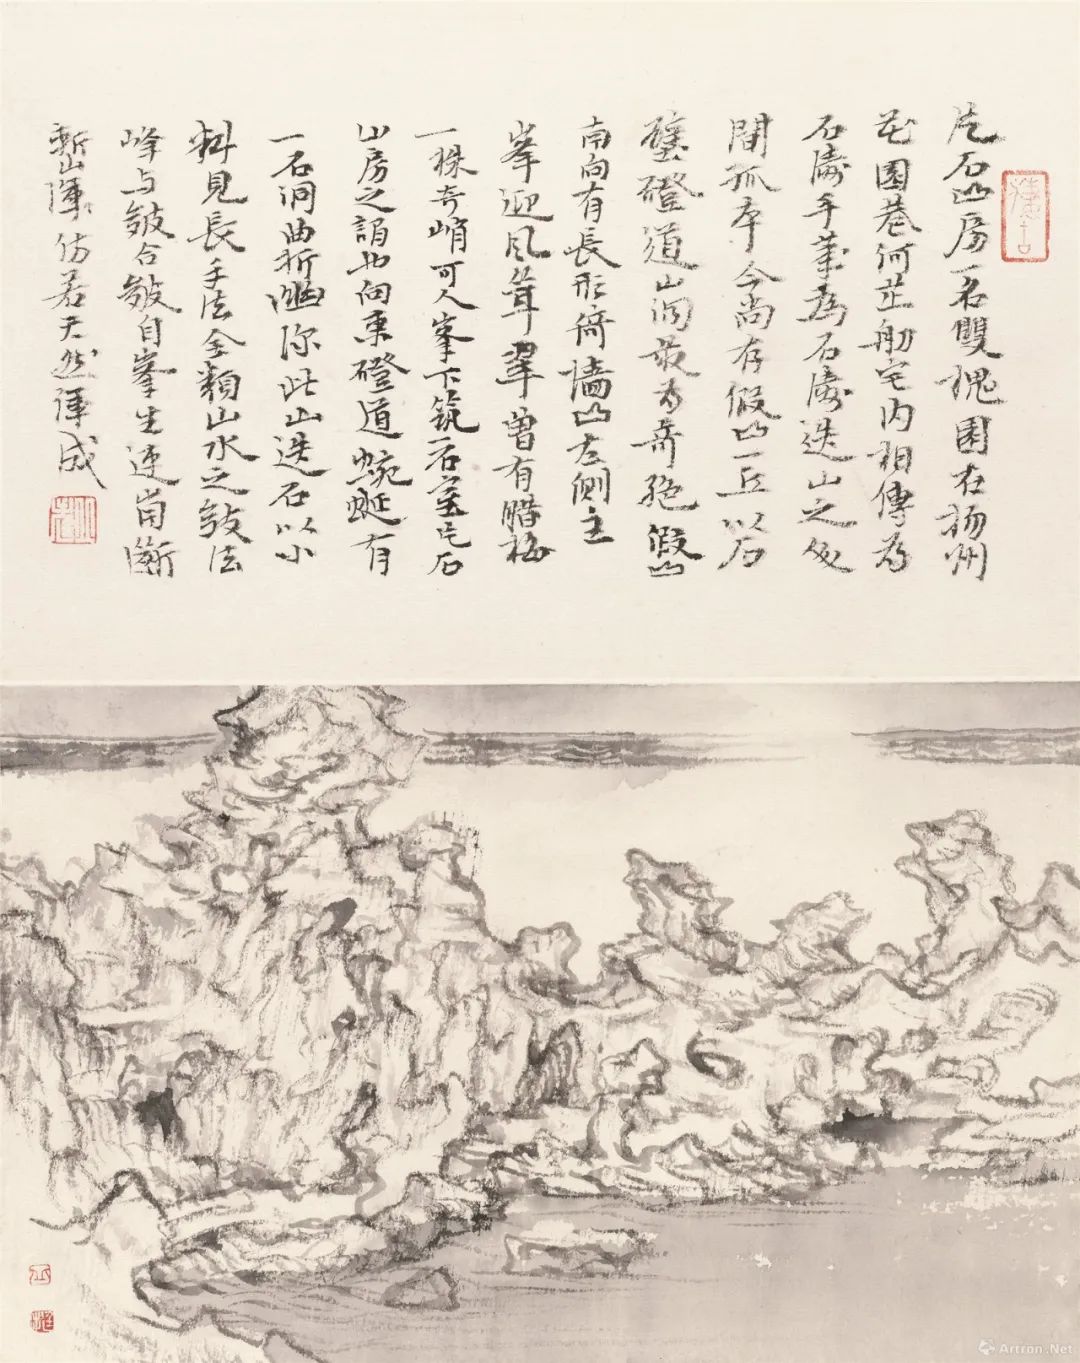 片石山房一名雙槐園在扬州
花園巷何芷舠宅内相傳为
石濤手筆為石濤迭山之人
間孤本今尚存假山一丘以石
壁磴道山洞最为奇绝假山
南向有長形倚墙山左侧主
峯迎风耸翠曽有腊梅
一株奇峭可人峯下筑石室片石
山房之謂也向東磴道蜿蜒有
一石洞曲折幽深此山迭石以小
料見長手法全類山水之皴法
峰与皴合皴自峯生連崗斷
塹渾仿若天然渾成
Artron.Net